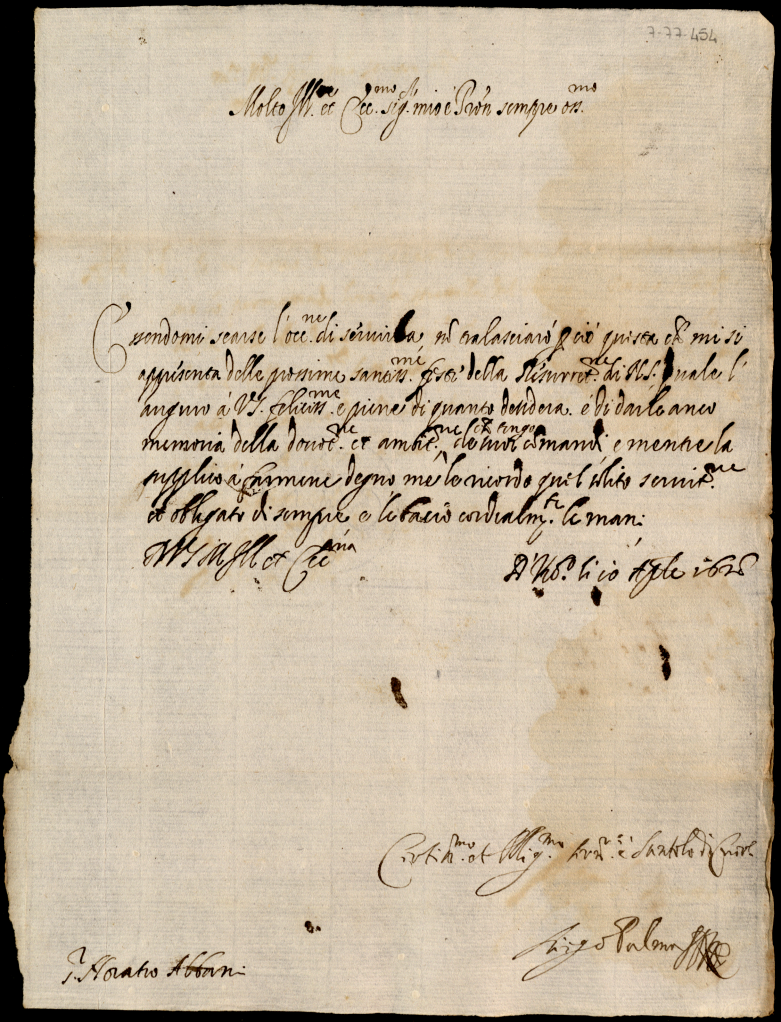 7-77-454
Molto Ill.re et Ecc.mo Sig.r mio e Pron sempre oss.mo
Essendomi scarse l'occ.ne di servirla, nō tralasciarò p ciò questa ch mi si
appresenta delle prossime santiss.me feste della Resurret.ne di N.S. quale l'
auguro à V.S. feliciss.me e piene di quanto desidera. e di darle anco
memoria della devot.ne et ambit.ne ch tengo de suoi comandi e mentre la
supplico à farmene degno me le ricordo quel solito servit.re
et obligato di sempre e le bacio cordialm.te le mani
D V S M Ill et Ecc.ma
Di li 10 Aple
Certiss.mo et Oblig.mo ser.re è Santolo di Cuore
Palma
S.r Horatio Abbani